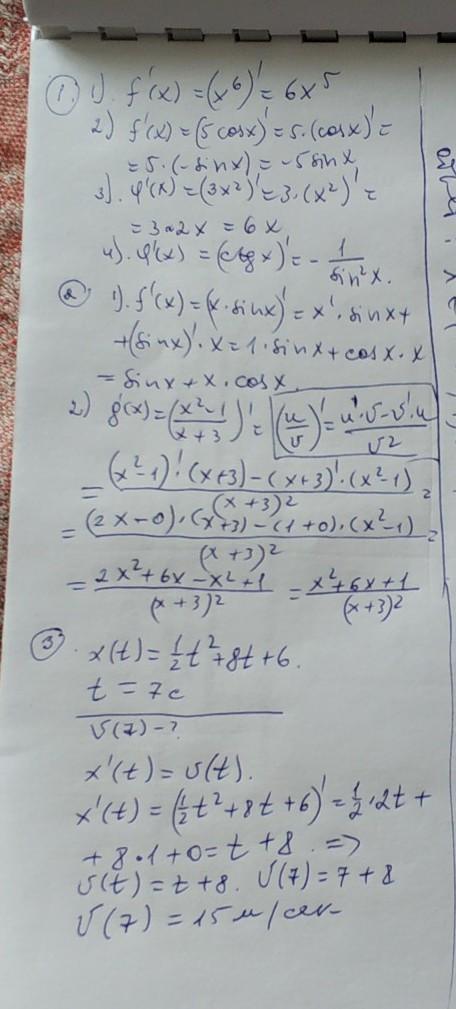 1. 1). f'(x) = (x⁶)' = 6x⁵
2) f'(x) = (5cosx)' = 5·(cosx)' =
= 5·(-sinx) = -5sinx
3). φ'(x) = (3x²)' = 3·(x²)' =
= 3·2x = 6x
4). φ'(x) = (ctgx)' = - 1/sin²x.
2. 1). f'(x) = (x·sinx)' = x'·sinx +
+ (sinx)'·x = 1·sinx + cosx·x
= sinx + x·cosx.
2) g'(x) = ((x²-1)/(x+3))' = (u/v)' = (u'·v - v'·u)/v²
= ((x²-1)'·(x+3) - (x+3)'·(x²-1))/(x+3)² =
= ((2x-0)·(x+3) - (1+0)·(x²-1))/(x+3)² =
= (2x²+6x-x²+1)/(x+3)² = (x²+6x+1)/(x+3)²
3. x(t) = ½t²+8t+6.
t = 7c
v(7) - ?
x'(t) = v(t).
x'(t) = (½t²+8t+6)' = ½·2t +
+ 8·1+0 = t+8. =>
v(t) = t+8. v(7) = 7+8
v(7) = 15 м/сек